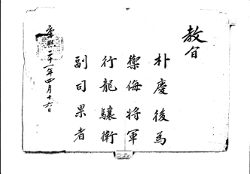 教旨
朴慶後為
禦侮將軍
行龍驤衛
副司果者
康熙二十一年四月十六日